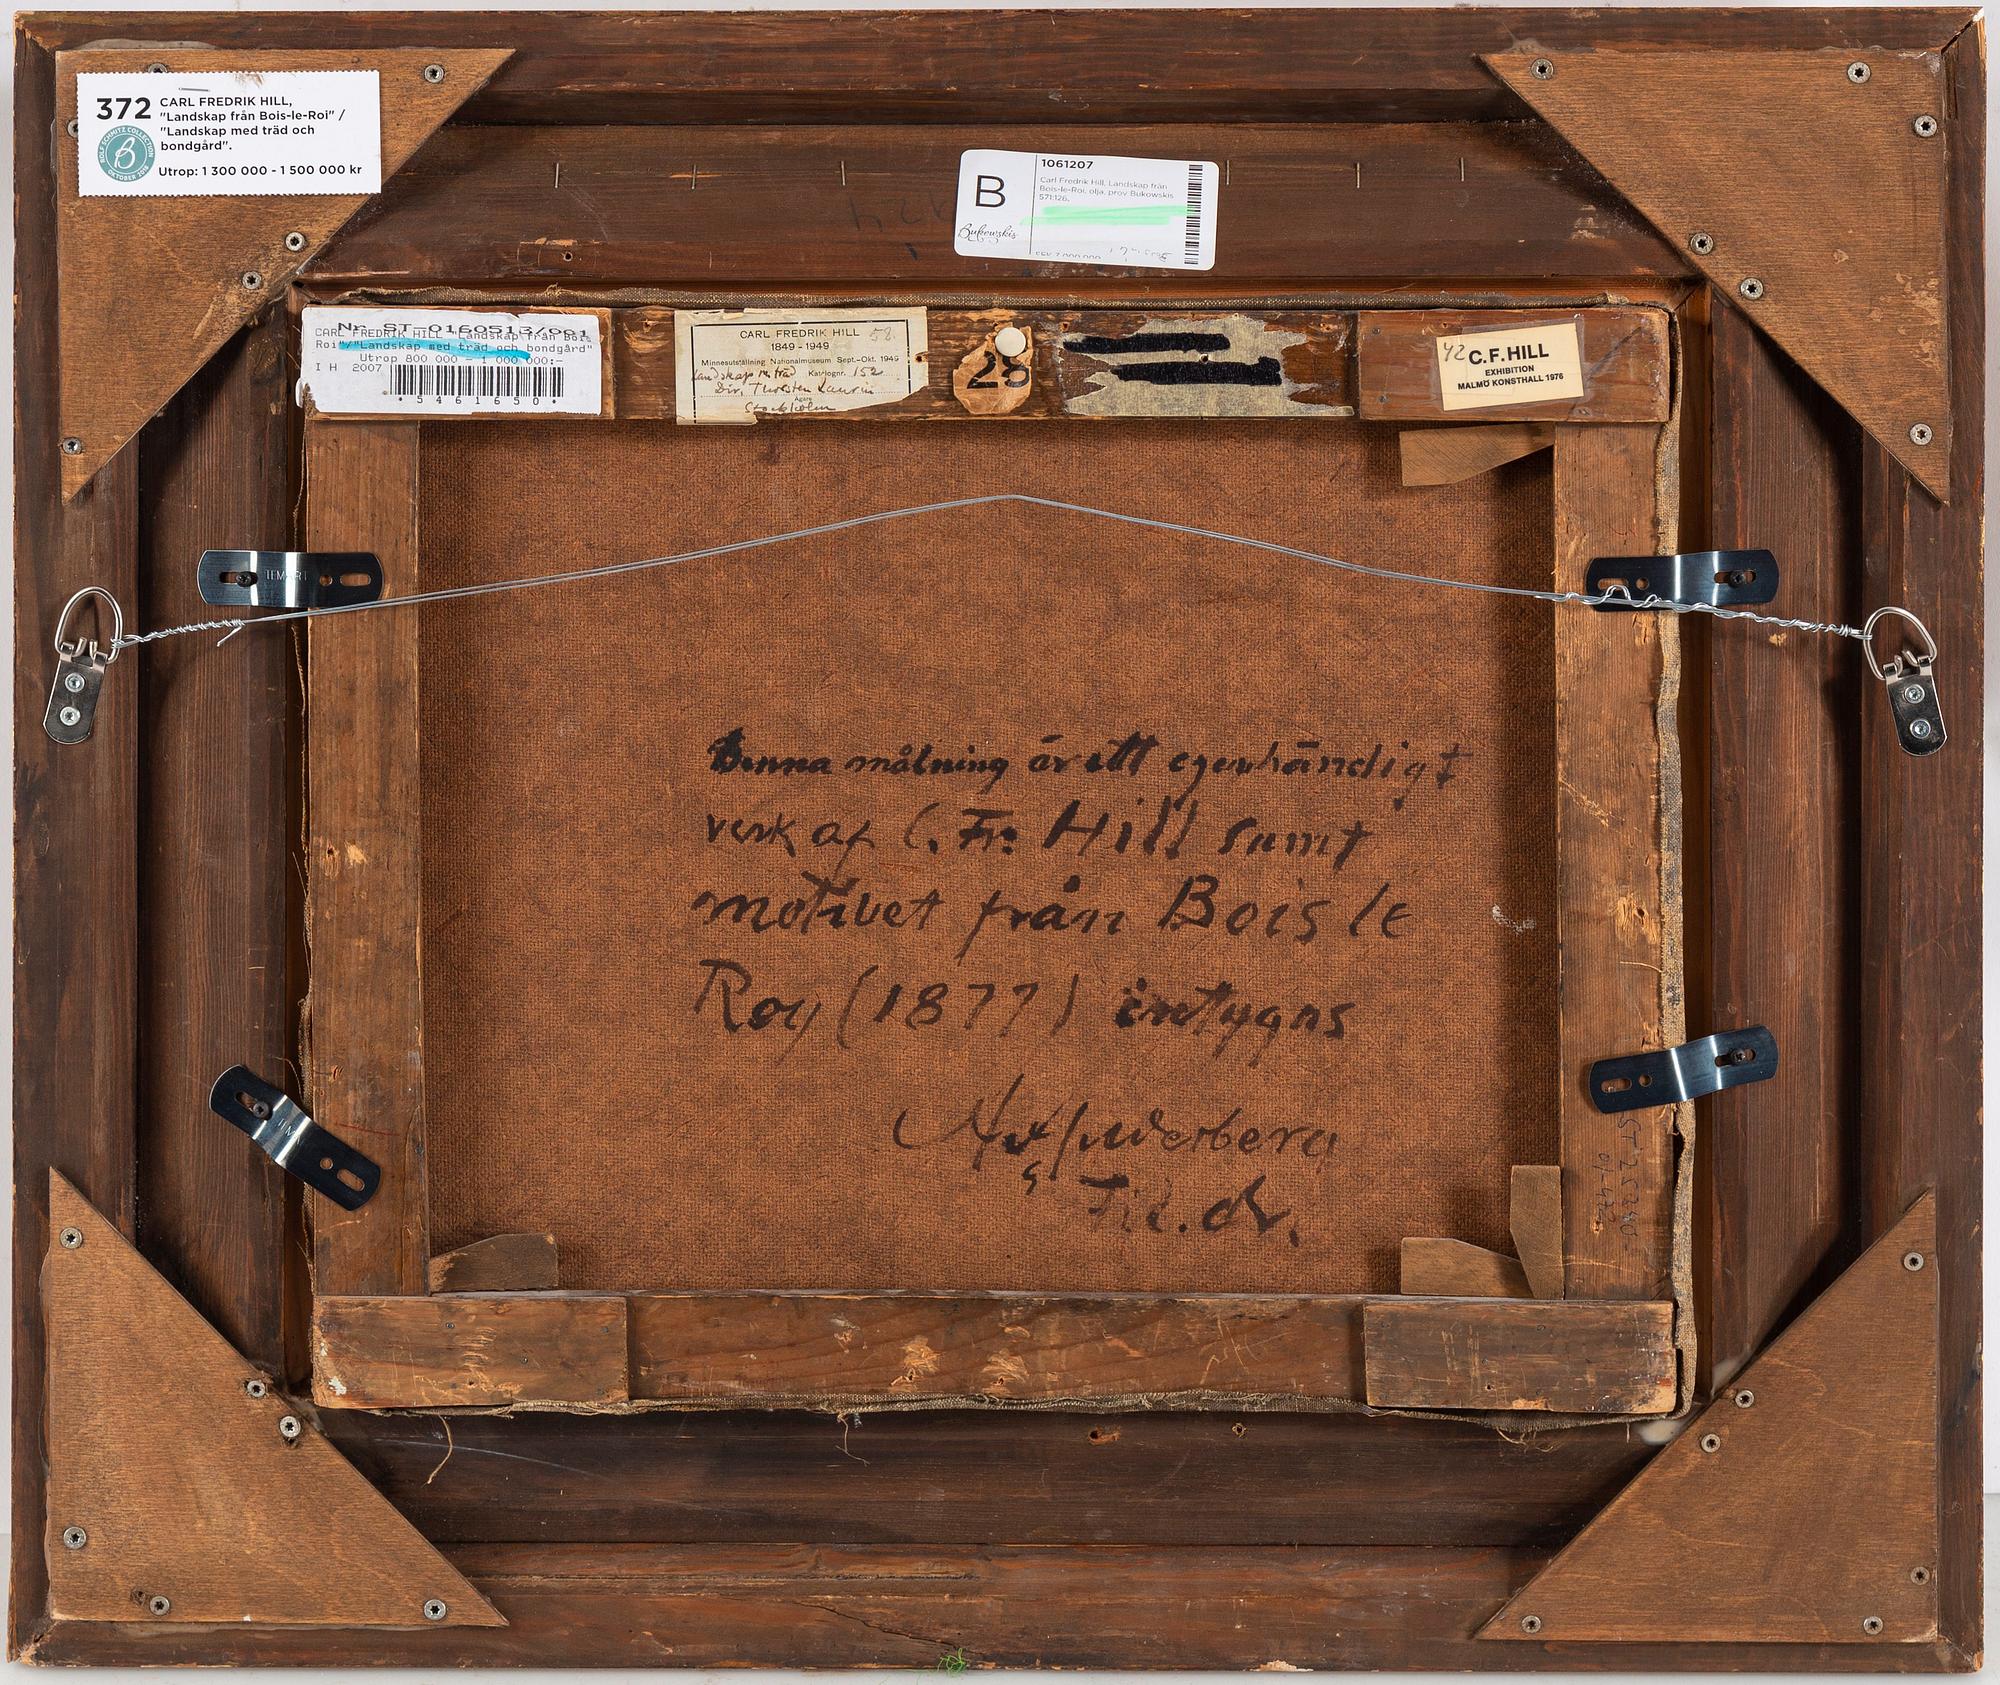 372 CARL FREDRIK HILL,
"Landskap från Bois-le-Roi" /
"Landskap med träd och
bondgård".
Utrop: 1 300 000 - 1 500 000 kr
ROLF SCHMITZ COLLECTION
B
OKTOBER 2018
B
Bukowskis
1061207
Carl Fredrik Hill, Landskap från
Bois-le-Roi, olja, prov Bukowskis
571:126,
Nr. ST-0160513/001
CARL FREDRIK HILL "Landskap från Bois
Roi"/"Landskap med träd och bondgård"
Utrop 800 000 - 1 000 000:-
I H 2007
5461650
CARL FREDRIK HILL 58.
1849 - 1949
Minnesutställning Nationalmuseum Sept.-Okt. 1949
Landskap m. träd Katalognr. 152
Dir. Thorsten Laurin
Ägare
Stockholm
28
42 C.F. HILL
EXHIBITION
MALMÖ KONSTHALL 1976
TEMART
Denna målning är ett egenhändigt
verk af C. Fr. Hill samt
motivet från Bois le
Roy (1877) intygas
Anderberg
Fil. dr.